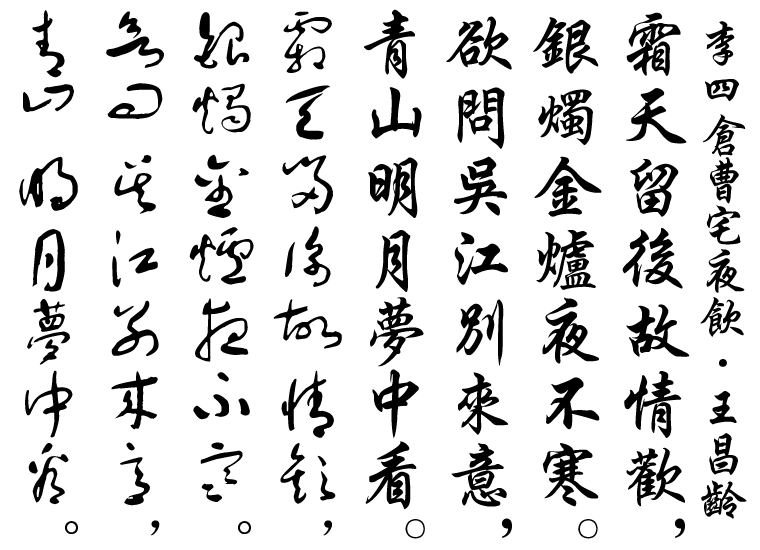 李四倉曹宅夜飲・王昌齡
霜天留後故情歡,
銀燭金爐夜不寒。
欲問吳江別來意,
青山明月夢中看。
霜天留後故情歡,
銀燭金爐夜不寒。
欲問吳江別來意,
青山明月夢中看。